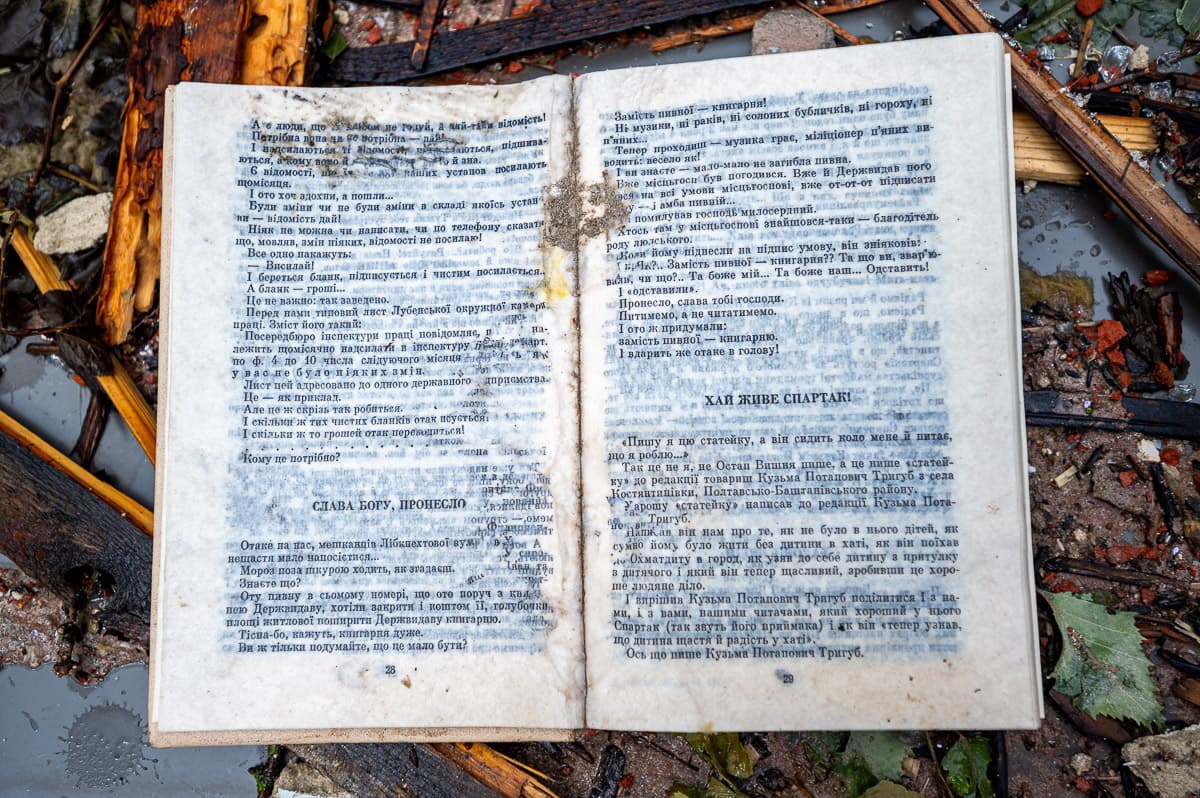 А є люди, що й хлібом не годуй, а дай-таки відомість!
Потрібна вона чи не потрібна — дай!
І надсилаються ті відомості, підшива-
ються, а кому воно й
Є відомості, що їх наших установ посилають
щомісяця.
І ото хоч здохни, а пошли...
Були зміни чи не були зміни в складі якоїсь устан
ви — відомість дай!
Ніяк не можна чи написати, чи по телефону сказати
що, мовляв, змін ніяких, відомості не посилаю!
Все одно накажуть:
— Висилай!
І береться бланк, підписується і чистим посилається.
А бланк — гроші...
Це не важно: так заведено.
Перед нами типовий лист Лубенської окружної камери
праці. Зміст його такий:
Посередбюро інспектури праці повідомляє, на-
лежить щомісячно надсилати в інспектуру карт.
по ф. 4 до 10 числа слідуючого місяця
у вас не було ніяких змін.
Лист цей адресовано до одного державного дприємства.
Це — як приклад.
Але це ж скрізь так робиться.
І скільки ж тих чистих бланків отак псується!
І скільки ж то грошей отак переводиться!
Кому це потрібно?
СЛАВА БОГУ, ПРОНЕСЛО
Отаке на нас, мешканців Лібкнехтової вул
нещастя мало напосістися...
Мороз поза шкурою ходить, як згадаєш.
Знаєте що?
Оту пивну в сьомому номері, що ото поруч з кни
нею Держвидаву, хотіли закрити і коштом її, голубочки,
площі житлової поширити Держвидаву книгарню.
Тісна-бо, кажуть, книгарня дуже.
Ви ж тільки подумайте, що це мало бути?
28
Замість пивної — книгарня!
Ні музики, ні раків, ні солоних бубличків, ні гороху, ні
п'яних...
Тепер проходиш — музика грає, міліціонер п'яних ви-
водить: весело як!
І ви знаєте — мало-мало не загибла пивна.
Вже місцьгосп був погодився. Вже й Держвидав пого
вся на всі умови місцьгоспові, вже от-от-от підписати
у — і амба пивній...
помилував господь милосердний.
Хтось там у місцьгоспові знайшовся-таки — благодітель
роду людського.
Коли йому піднесли на підпис умову, він зніяковів:
— Замість пивної — книгарня?? Та що ви, звар'ю-
вали, чи що?.. Та боже мій... Та боже наш... Одставить!
І «одставили».
Пронесло, слава тобі господи.
Питимемо, а не читатимемо.
І ото ж придумали:
замість пивної — книгарню.
І вдарить же отаке в голову!
ХАЙ ЖИВЕ СПАРТАК!
«Пишу я цю статейку, а він сидить коло мене й питає,
що я роблю...»
Так це не я, не Остап Вишня пише, а це пише «статей-
ку» до редакції товариш Кузьма Потапович Тригуб з села
Костянтинівки, Полтавсько-Баштанівського району.
Хорошу «статейку» написав до редакції Кузьма Пота-
Тригуб.
Написав він нам про те, як не було в нього дітей, як
сумно йому було жити без дитини в хаті, як він поїхав
до Охматдиту в город, як узяв до себе дитину з притулку
з дитячого і який він тепер щасливий, зробивши це хоро-
ше людяне діло.
І вирішив Кузьма Потапович Тригуб поділитися і з на-
ми, і з вами, нашими читачами, який хороший у нього
Спартак (так звуть його приймака) і як він «тепер узнав,
що дитина щастя й радість у хаті».
Ось що пише Кузьма Потапович Тригуб.
29